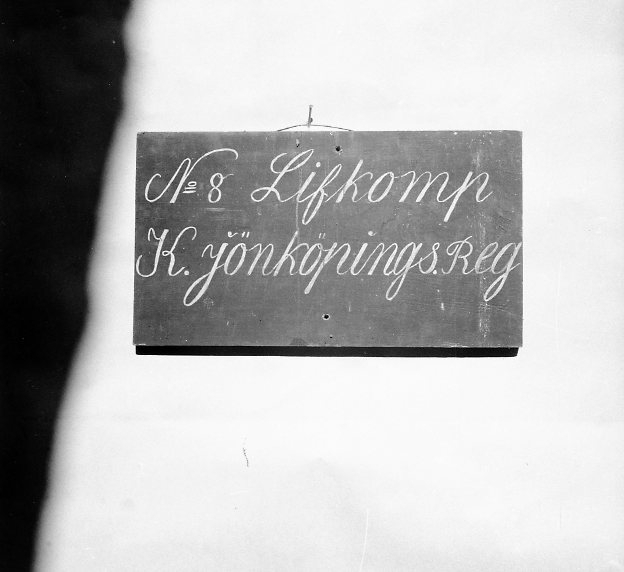 No 8 Lifkomp
K. Jönköpings. Reg